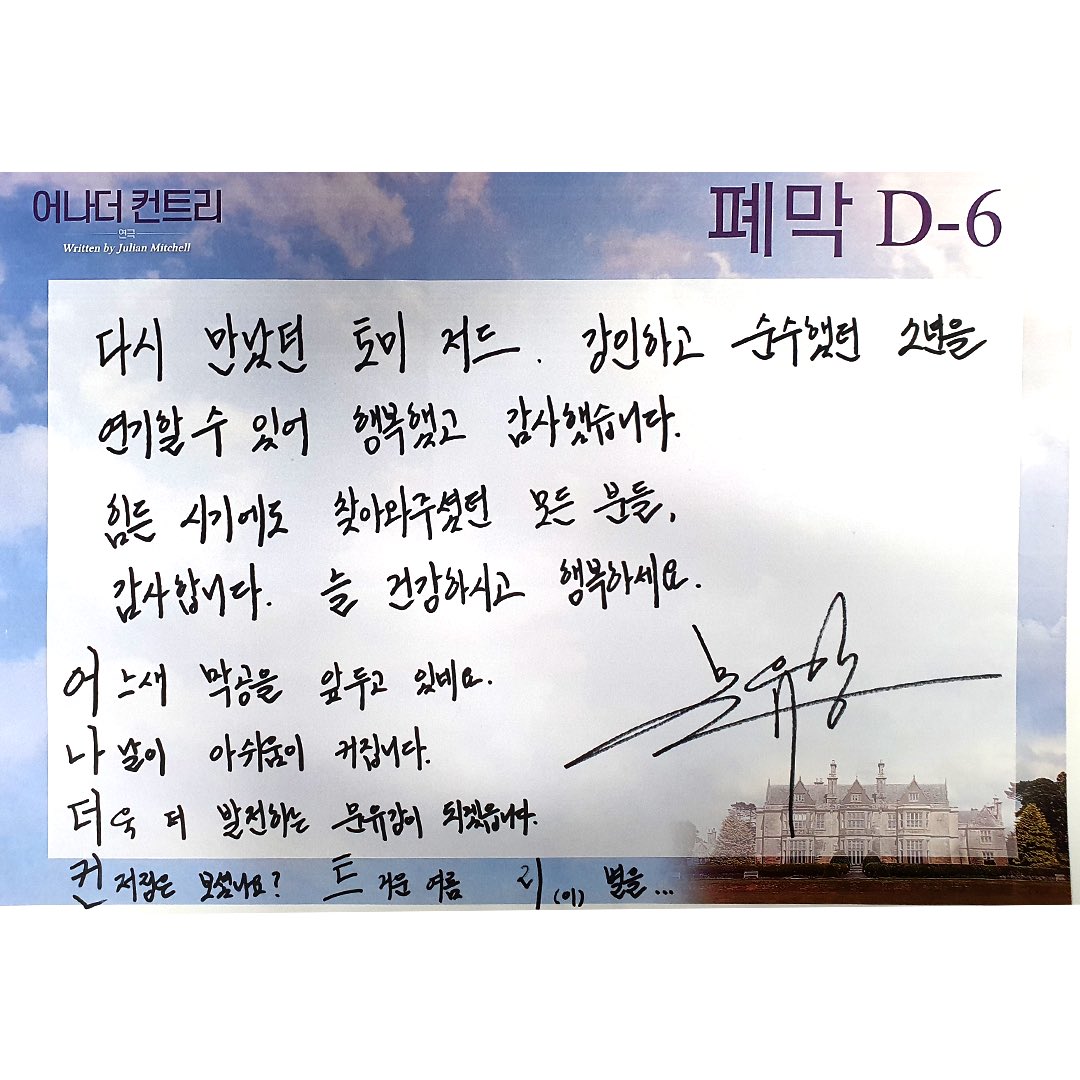 어나더 컨트리
연극
Written by Julian Mitchell
폐막 D-6
다시 만났던 토미 저드. 강인하고 순수했던 소년을
연기할 수 있어 행복했고 감사했습니다.
힘든 시기에도 찾아와주셨던 모든 분들,
감사합니다. 늘 건강하시고 행복하세요.
어느새 막공을 앞두고 있네요.
나날이 아쉬움이 커집니다.
더욱 더 발전하는 문유강이 되겠습니다.
컨저링은 보셨나요? 트거운 여름 리(이) 별을...
문유강